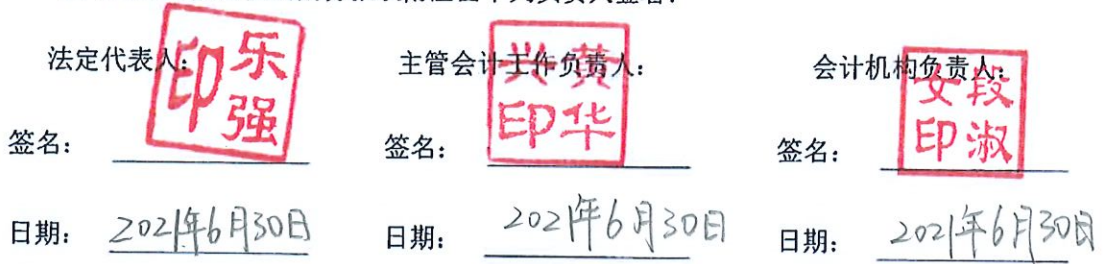 法定代表人： 主管会计工作负责人： 会计机构负责人：
乐强印 黄华兴印 段淑女印
签名： 签名： 签名：
日期： 2021年6月30日 日期： 2021年6月30日 日期： 2021年6月30日